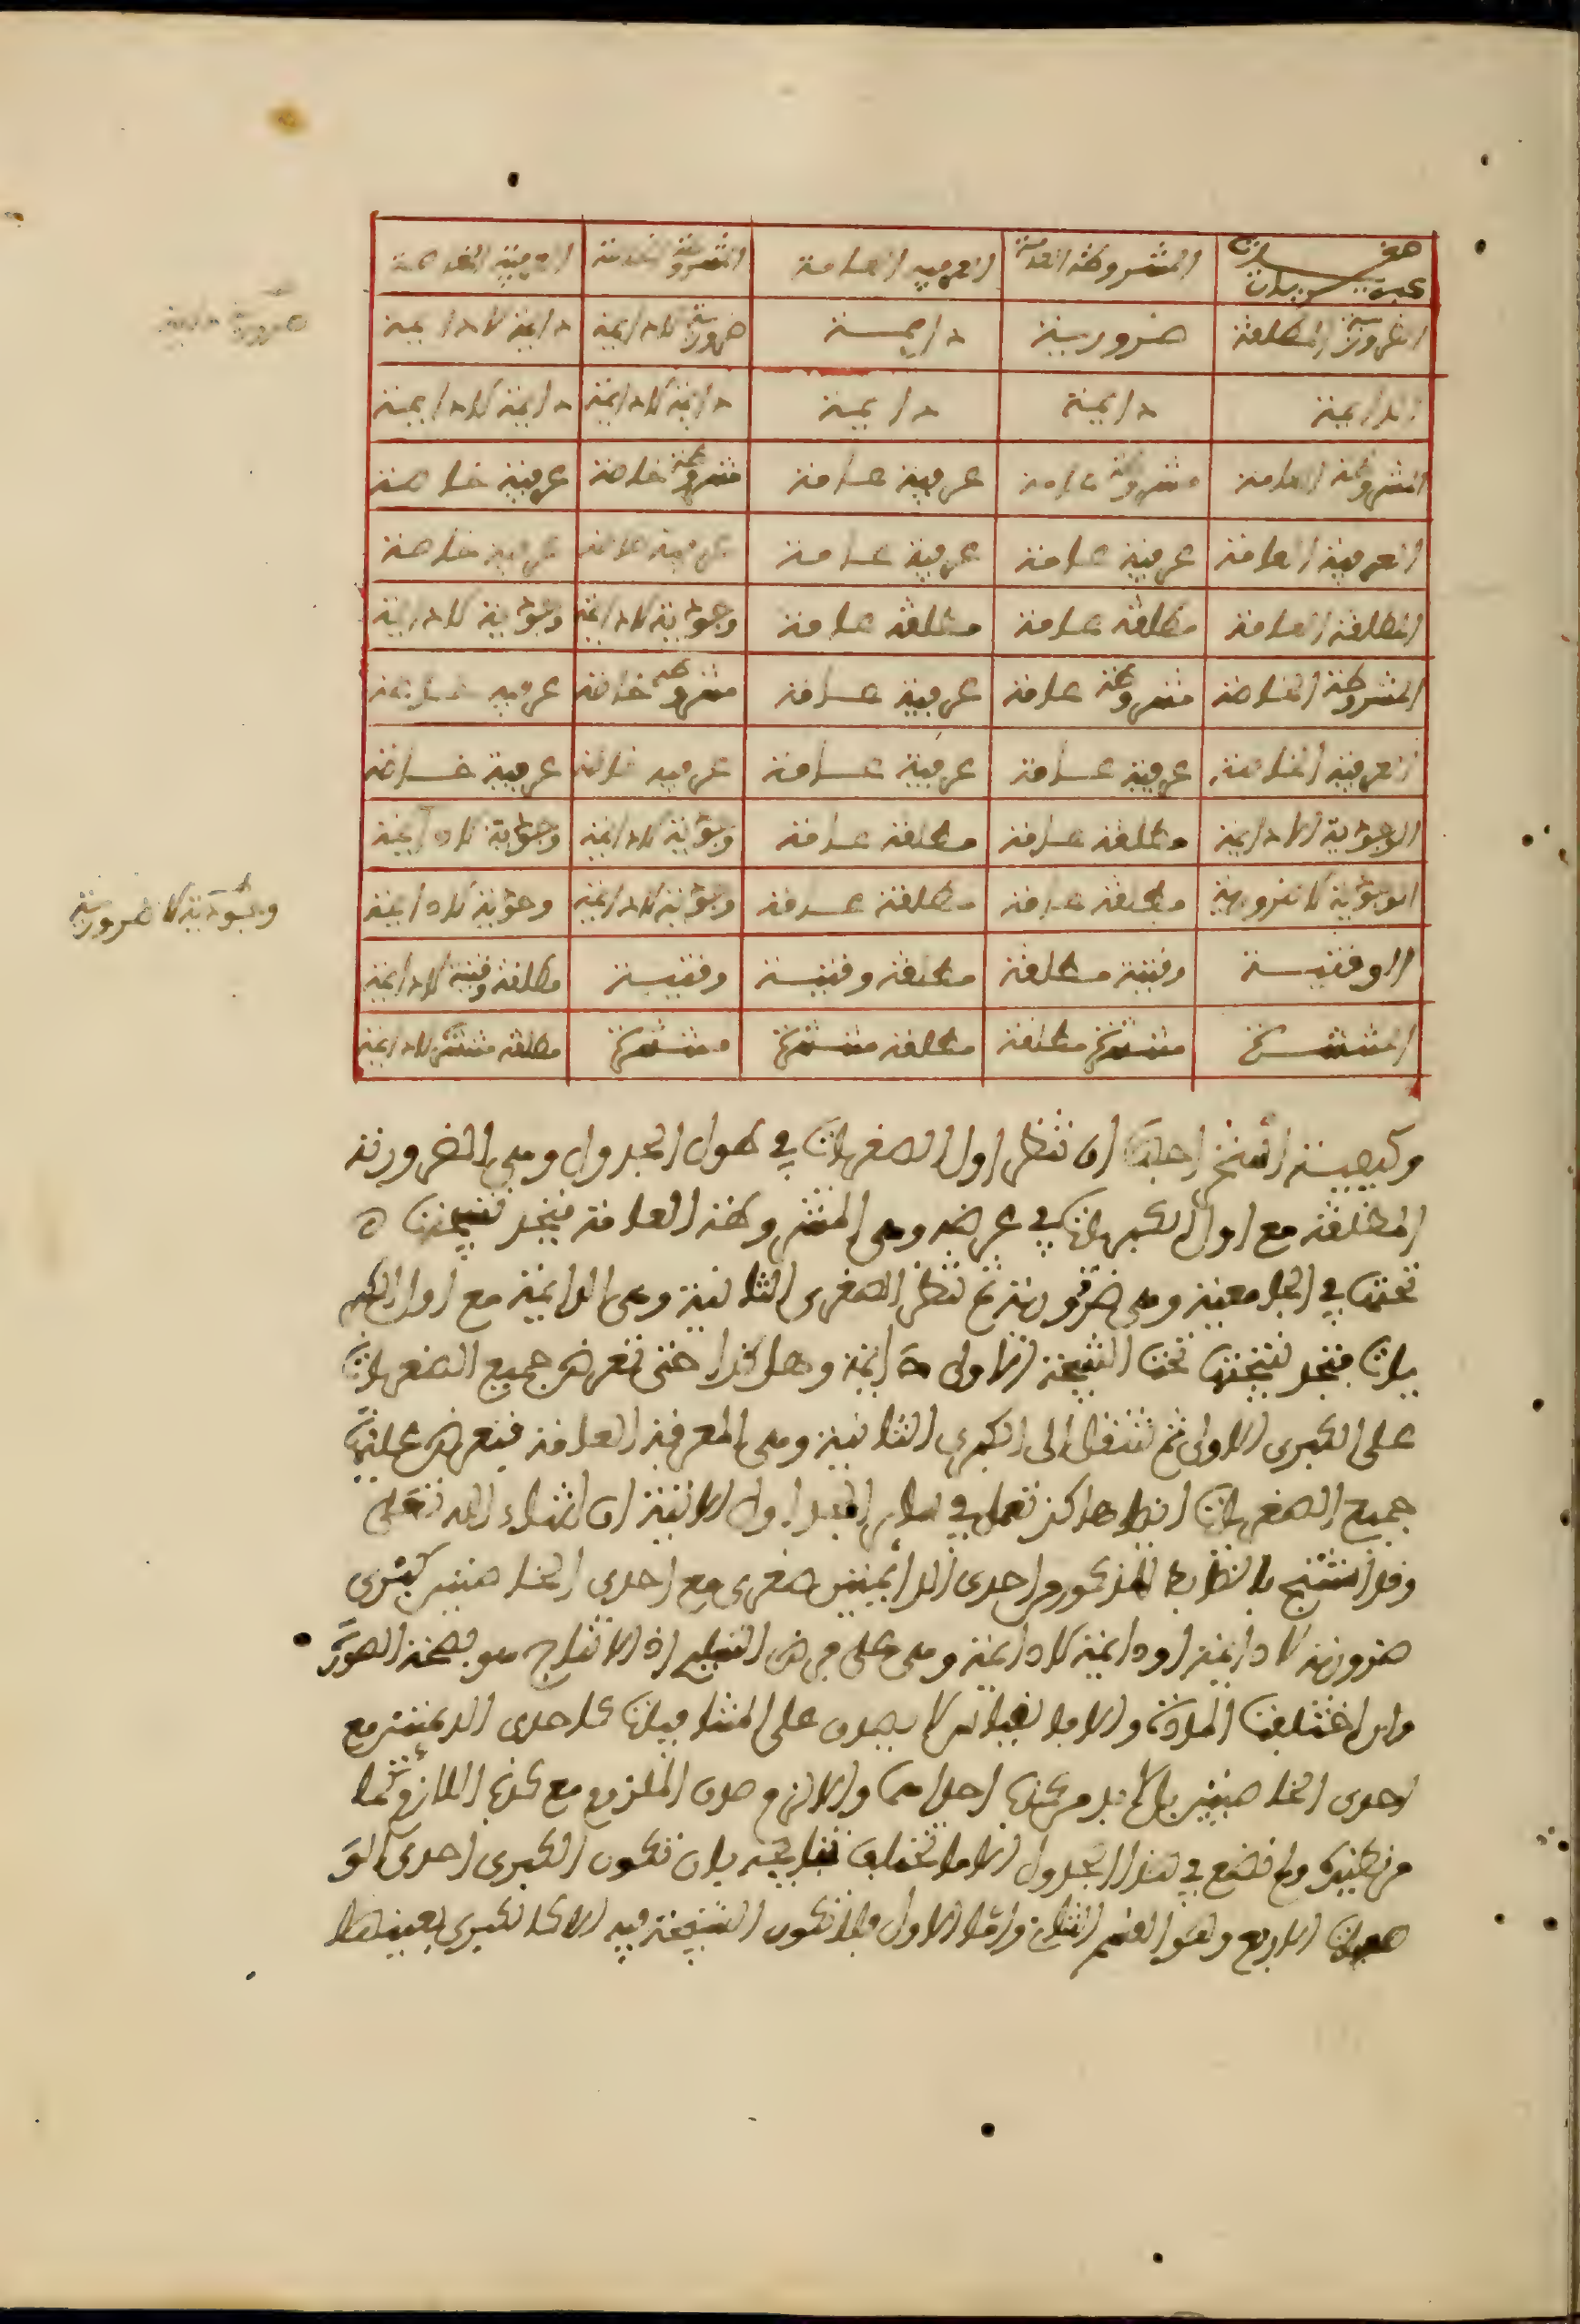 صغريات كبريات | المشروطة العامة | العرفية العامة | المشروطة الخاصة | العرفية الخاصة
الضرورية المطلقة | ضرورية | دايمة | ضرورية لادايمة | دايمة لادايمة
الدايمة | دايمة | دايمة | دايمة لادايمة | دايمة لادايمة
المشروطة العامة | مشروطة عامة | عرفية عامة | مشروطة خاصة | عرفية خاصة
العرفية العامة | عرفية عامة | عرفية عامة | عرفية خاصة | عرفية خاصة
المطلقة العامة | مطلقة عامة | مطلقة عامة | وجودية لادايمة | وجودية لادايمة
المشروطة الخاصة | مشروطة عامة | عرفية عامة | مشروطة خاصة | عرفية خاصة
العرفية الخاصة | عرفية عامة | عرفية عامة | عرفية خاصة | عرفية خاصة
الوجودية اللادايمة | مطلقة عامة | مطلقة عامة | وجودية لادايمة | وجودية لادايمة
الوجودية لاضرورية | مطلقة عامة | مطلقة عامة | وجودية لادايمة | وجودية لادايمة
الوقتية | وقتية مطلقة | مطلقة وقتية | وقتية | مطلقة وقتية لادايمة
المنتشرة | منتشرة مطلقة | مطلقة منتشرة | منتشرة | مطلقة منتشرة لادايمة
ضرورية دايمة
وجودية لاضرورية
وكيفية ان تنظر اول الصغريات في طول الجدول وهي الضرورية
المطلقة مع اول الكبريات في عرضه وهي المشروطة العامة فتجد نتيجتها
تحتها في الجامعية وهي ضرورية ثم تنظر الصغرى الثانية وهي الدايمة مع اول الكبر
يات فتجد نتيجتها تحت النتيجة الاولى دايمة وهاكذا حتى تعرض جميع الصغريات
على الكبرى الاولى ثم تنتقل الى الكبرى الثانية وهي العرفية العامة فتعرض عليها
جميع الصغريات ايضا هاكذ تعمل في ساير الجداول الاتية ان شاء الله تعلى
وقد انتج بالضابط المذكور احدى الدايمتين صغرى مع احدى الخاصتين كبرى
ضرورية لا دايمة او دايمة لادايمة وهي على فرض التسليم اذ الانتاج هو بصحة الصور
وان اختلفت المادة والا فالقياس لا يصدق على المتنافيات كاحدى الدايمتين مع
احدى الخاصتين بل لا بد من كذب احداهما والا لزم صدق الملزوم مع كذب اللازم كما
ولم نضع في هذا الجدول الا ما تختلف نتايجه بان تكون الكبرى احدى الو
صفيات الاربع وهو القسم الثاني واما الاول فلا تكون النتيجة فيه الا كالكبرى بعينها